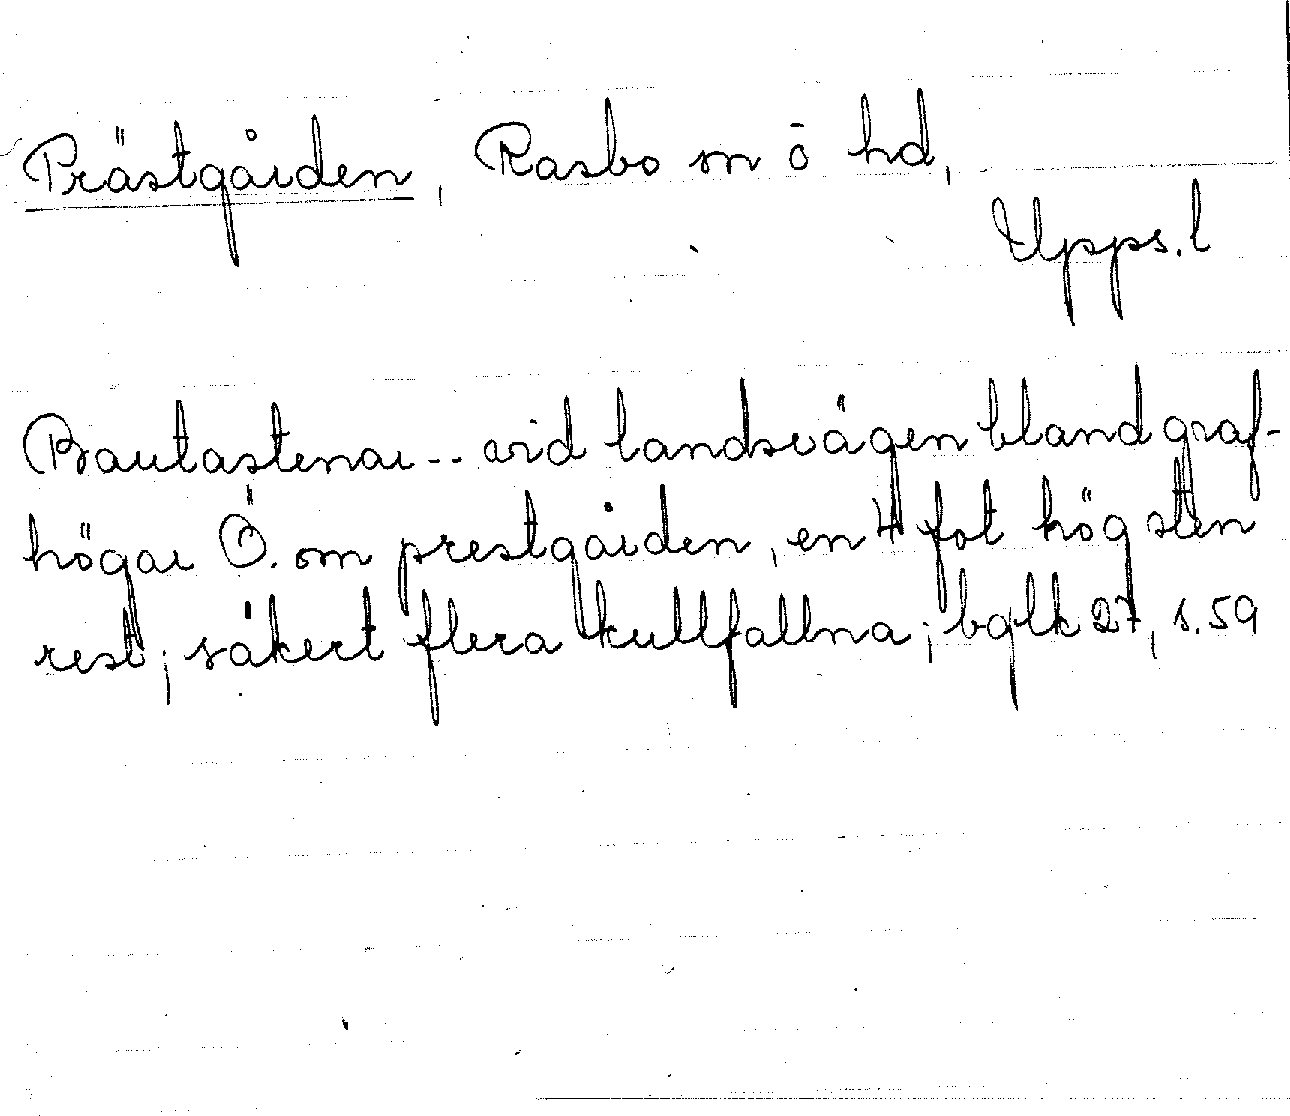 Prästgården, Rasbo sn o hd,
Upps. l
Bautastenar -- vid landsvägen bland graf-
högar Ö. om prestgården, en 4 fot hög sten
rest; säkert flera kullfallna; bglk 27, s. 59